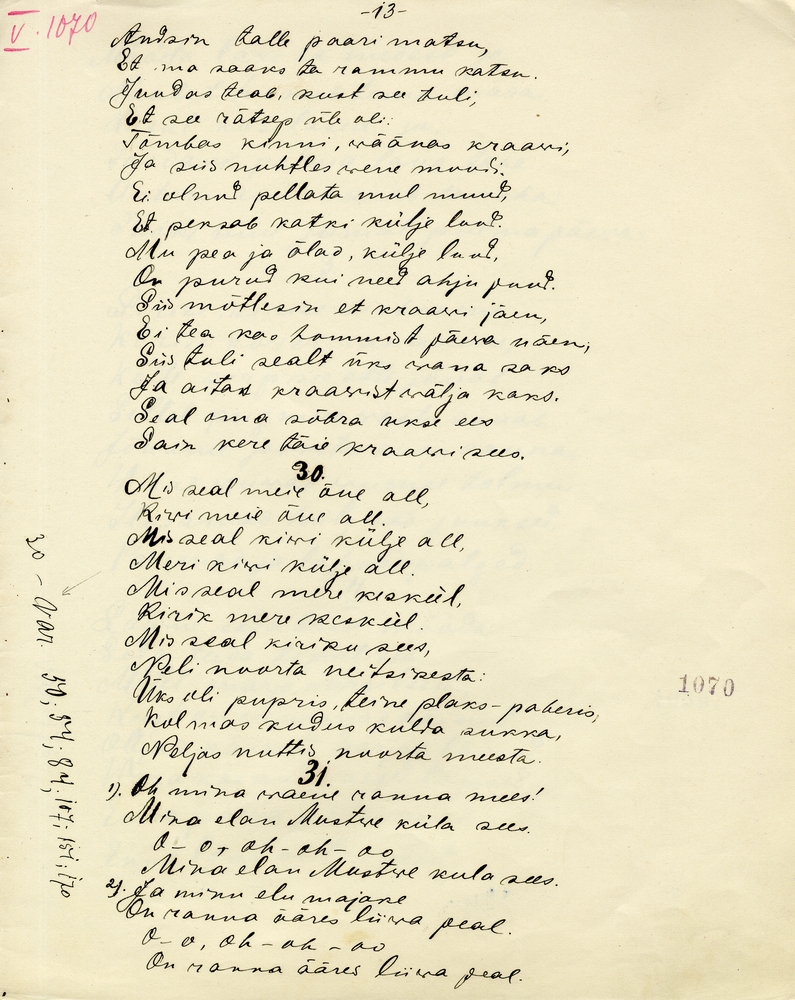 -13-
V. 1070
Andsin talle paari matsu,
Et ma saaks ta rammu katsu.
Juudas teab, kust see tuli,
Et see rätsep üle oli:
Tõmbas kinni, wäänas kraawi,
Ja siis nuhtles wene moodi.
Ei olnud pellata mul muud,
Et peksab katki külje luud.
Mu pea ja õlad, külje luud,
On purud kui need ahju puud.
Siis mõtlesin et kraawi jäen,
Ei tea kas hommist päewa näen;
Siis tuli sealt üks wana saks
Ja aitas kraawist wälja kaks.
Seal oma sõbra ukse ees
Sain kere täie kraawi sees.
30.
Mis seal meie õue all,
Kiwi meie õue all.
Mis seal kiwi külje all,
Meri kiwi külje all.
Mis seal mere keskeül,
Kirik mere keskeül.
Mis seal kiriku sees,
Neli noorta neitsikesta:
Üks oli pupris, teine plaks-paberis,
Kolmas kudus kulda sukka,
Neljas nuttis noorta meesta.
30 - Var. 50; 54; 84; 107; 151; 170
1070
31.
1). Oh mina waene ranna mees!
Mina elan Mustwe küla sees.
O- o, oh-oh-oo
Mina elan Mustwe kula sees.
2). Ja minu elu majake
On ranna ääres liiwa peal.
O-o, oh-oh-oo
On ranna ääres liiwa peal.